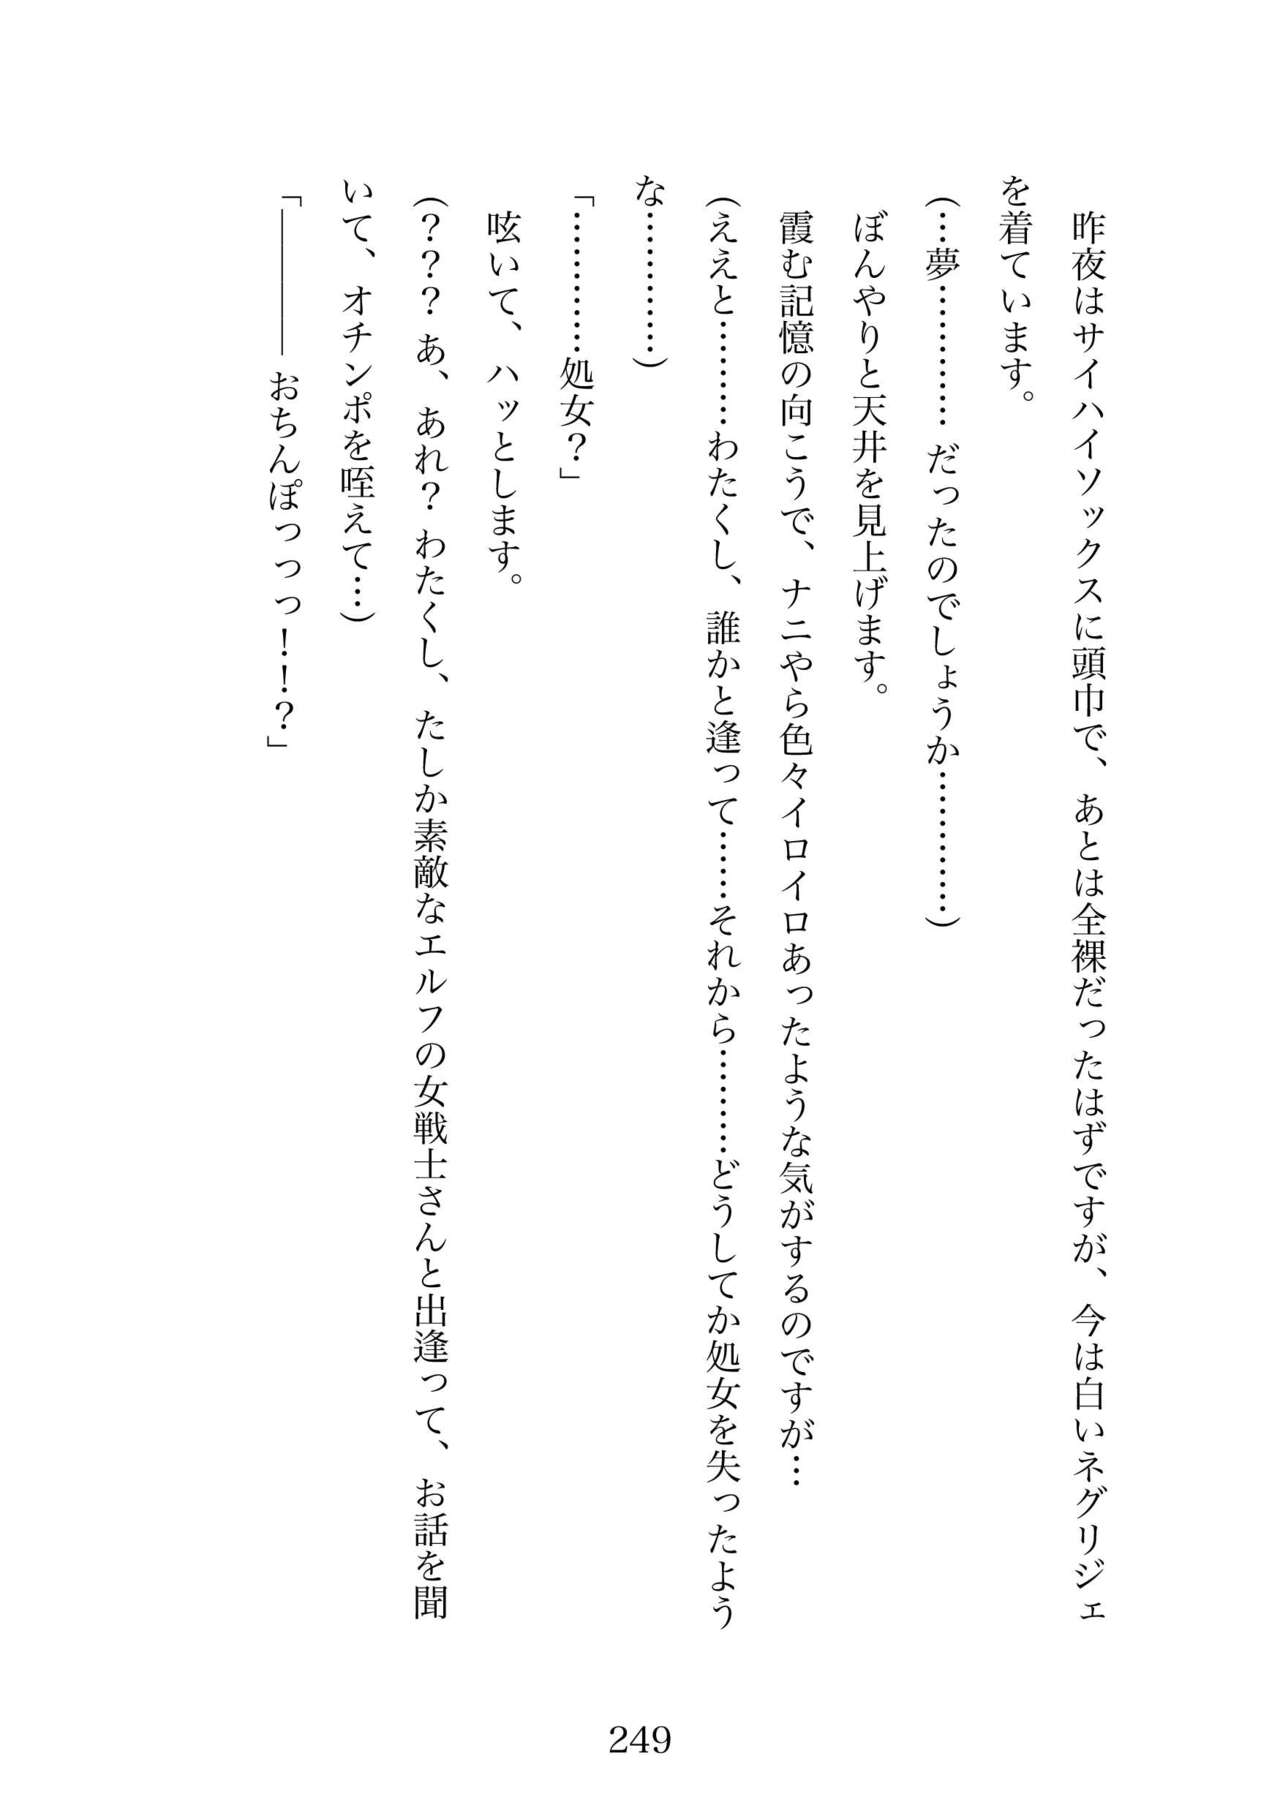 昨夜はサイハイソックスに頭巾で、あとは全裸だったはずですが、今は白いネグリジェ
を着ています。
(…夢………… だったのでしょうか…………)
ぼんやりと天井を見上げます。
霞む記憶の向こうで、ナニやら色々イロイロあったような気がするのですが…
(ええと………わたくし、誰かと逢って……それから………どうしてか処女を失ったよう
な…………)
「…………処女？」
呟いて、ハッとします。
(？？？ あ、あれ？ わたくし、たしか素敵なエルフの女戦士さんと出逢って、お話を聞
いて、オチンポを咥えて…)
「――――おちんぽっっっ！！？」
249